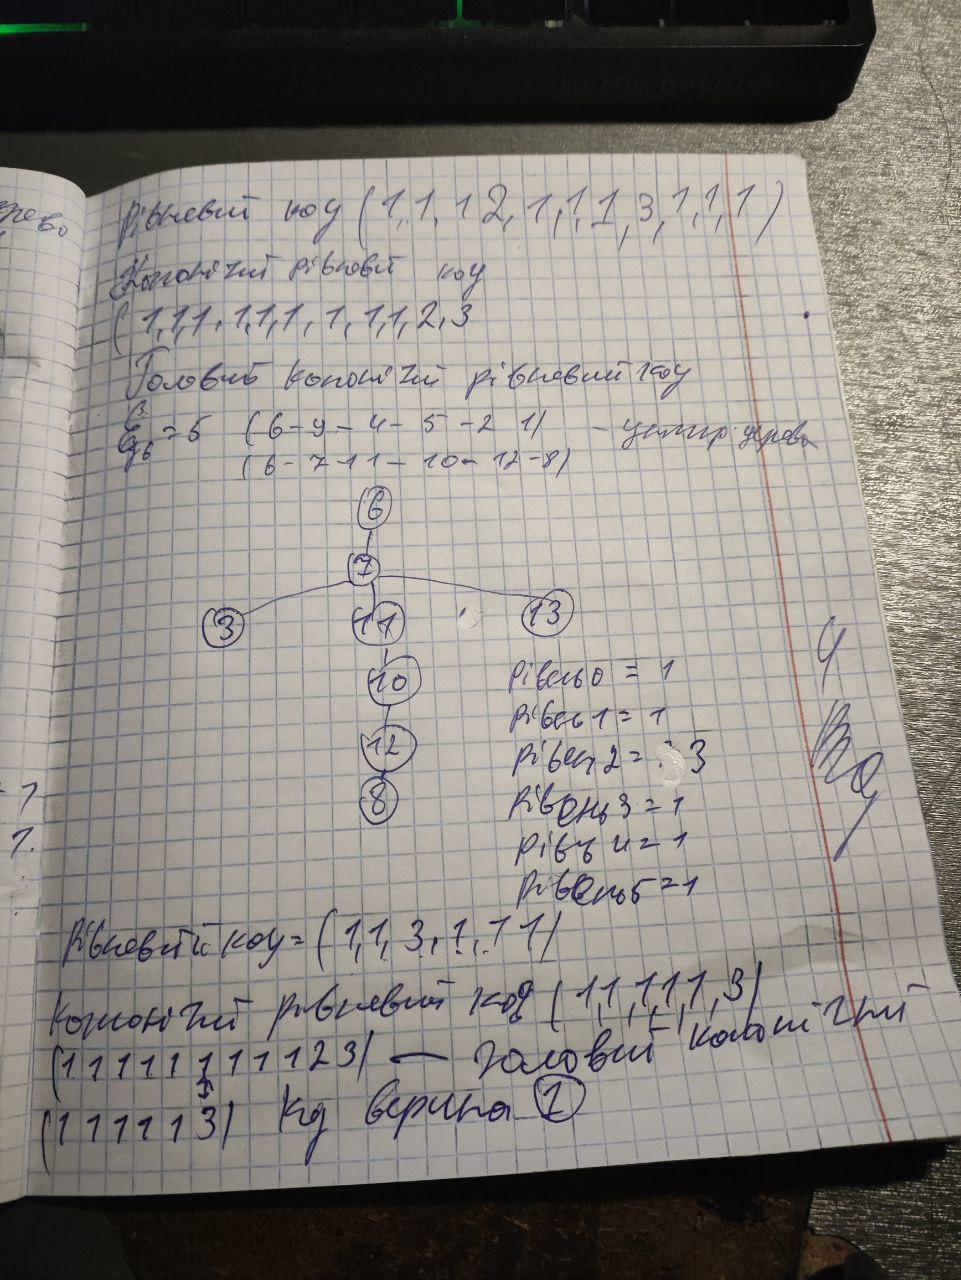 Рівневий код (1,1,1 2,1,1,1,3,1,1,1)
Канонічний рівневий код
(1,1,1,1,1,1,1,1,1,2,3
Головий канонічний рівневий код
= 5 (6-9-4-5-2 1) - центр дерева
(6-7-11-10-12-8)
6
7
3 11 13
10
12
8
Рівень 0 = 1
Рівень 1 = 1
Рівен 2 = 3
Рівень 3 = 1
Рівь 4 = 1
Рівень 5 = 1
Рівневий код = (1,1,3,1,1 1)
Канонічний рівневий код (1 1,1,1,1,3)
(1 1 1 1 1 1 1 1 1 2 3) — головий канонічний
(1 1 1 1 1 3) код вершина 1